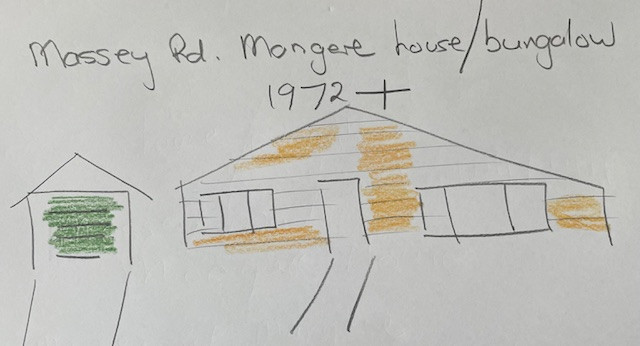 Massey Rd. Mangere house/bungalow
1972 +